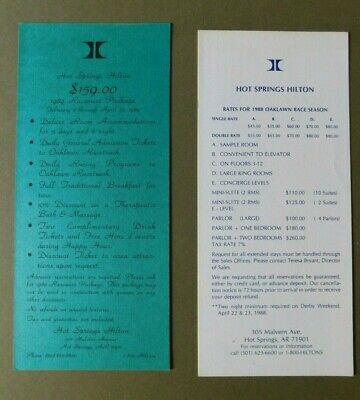 Hot Springs Hilton
$159.00
1989 Racemeet Package
February 3 through April 22, 1989
Deluxe Room Accommodations
for 3 days and 2 nights.
Daily General Admission Tickets
to Oaklawn Racetrack.
Daily Racing Programs to
Oaklawn Racetrack.
Full Traditional Breakfast for
two.
10% Discount on a Therapeutic
Bath & Massage.
Two Complimentary Drink
Tickets and Free Hors d'oeuvres
during Happy Hour.
Discount Ticket to area
attractions.
Advance reservations are required. Please ask
for 1989 Racemeet Package. This package may
not be combined with any other package or
discounts. No refunds on any unused portion.
Tax and gratuities not included.
Hot Springs Hilton
305 Malvern Avenue
Hot Springs, AR 71901
HOT SPRINGS HILTON
RATES FOR 1988 OAKLAWN RACE SEASON:
SINGLE RATE A. B. C. D. E.
$45.00 $55.00 $60.00 $70.00 $80.00
DOUBLE RATE $55.00 $65.00 $70.00 $80.00 $90.00
A. SAMPLE ROOM
B. CONVENIENT TO ELEVATOR
C. ON FLOORS 3-12
D. LARGE KING ROOMS
E. CONCIERGE LEVELS
MINI-SUITE (2 RMS) $110.00 (10 Suites)
MINI-SUITE (2 RMS) $125.00 ( 2 Suites)
E - LEVEL
PARLOR (LARGE) $100.00 ( 4 Parlors)
PARLOR + ONE BEDROOM $180.00
PARLOR + TWO BEDROOMS $260.00
TAX RATE 7%
Request for all extended stays must be handled through the
Sales Offices. Please contact Teresa Bryant, Director
of Sales
We are requesting that all reservations be guaranteed,
either by credit card, or advance deposit. Our cancellation
notice is 72 hours prior to arrival in order to receive
your deposit refund.
**Two night minimum required on Derby Weekend,
April 22 & 23, 1988.
305 Malvern Ave.
Hot Springs, AR 71901
For reservations or information
call (501) 623-6600 or 1-800-HILTONS